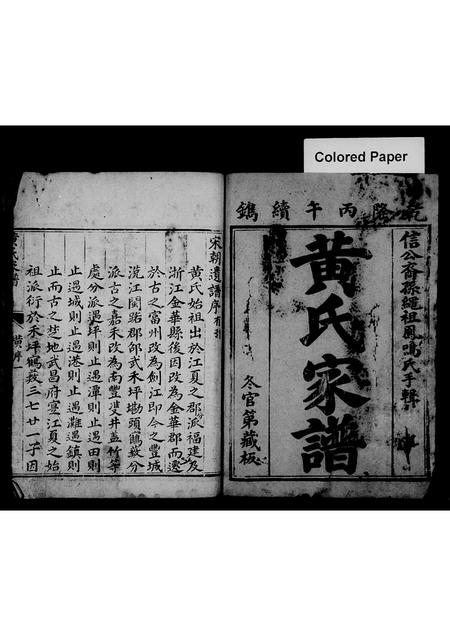 Colored Paper
乾隆丙午續鐫
信公裔孫繩祖鳳鳴氏手輯
黃氏家譜
冬官第藏板
宋朝遺譜序
黃氏始祖出於江夏之郡派福建及
浙江金華縣後因改為金華郡而遷
於古之富州改為劍江即今之豐城
沅江閩路邵武禾坪墈頭鶴藪分
派古之嘉禾改為南豐雙井蓋竹等
處分派遇坪則止遇潭則止遇田則
止遇城則止遇港則止遇灘遇鎮則
止而古之塟地武昌府寔江夏之始
祖派衍於禾坪鶴藪三七廿一子因